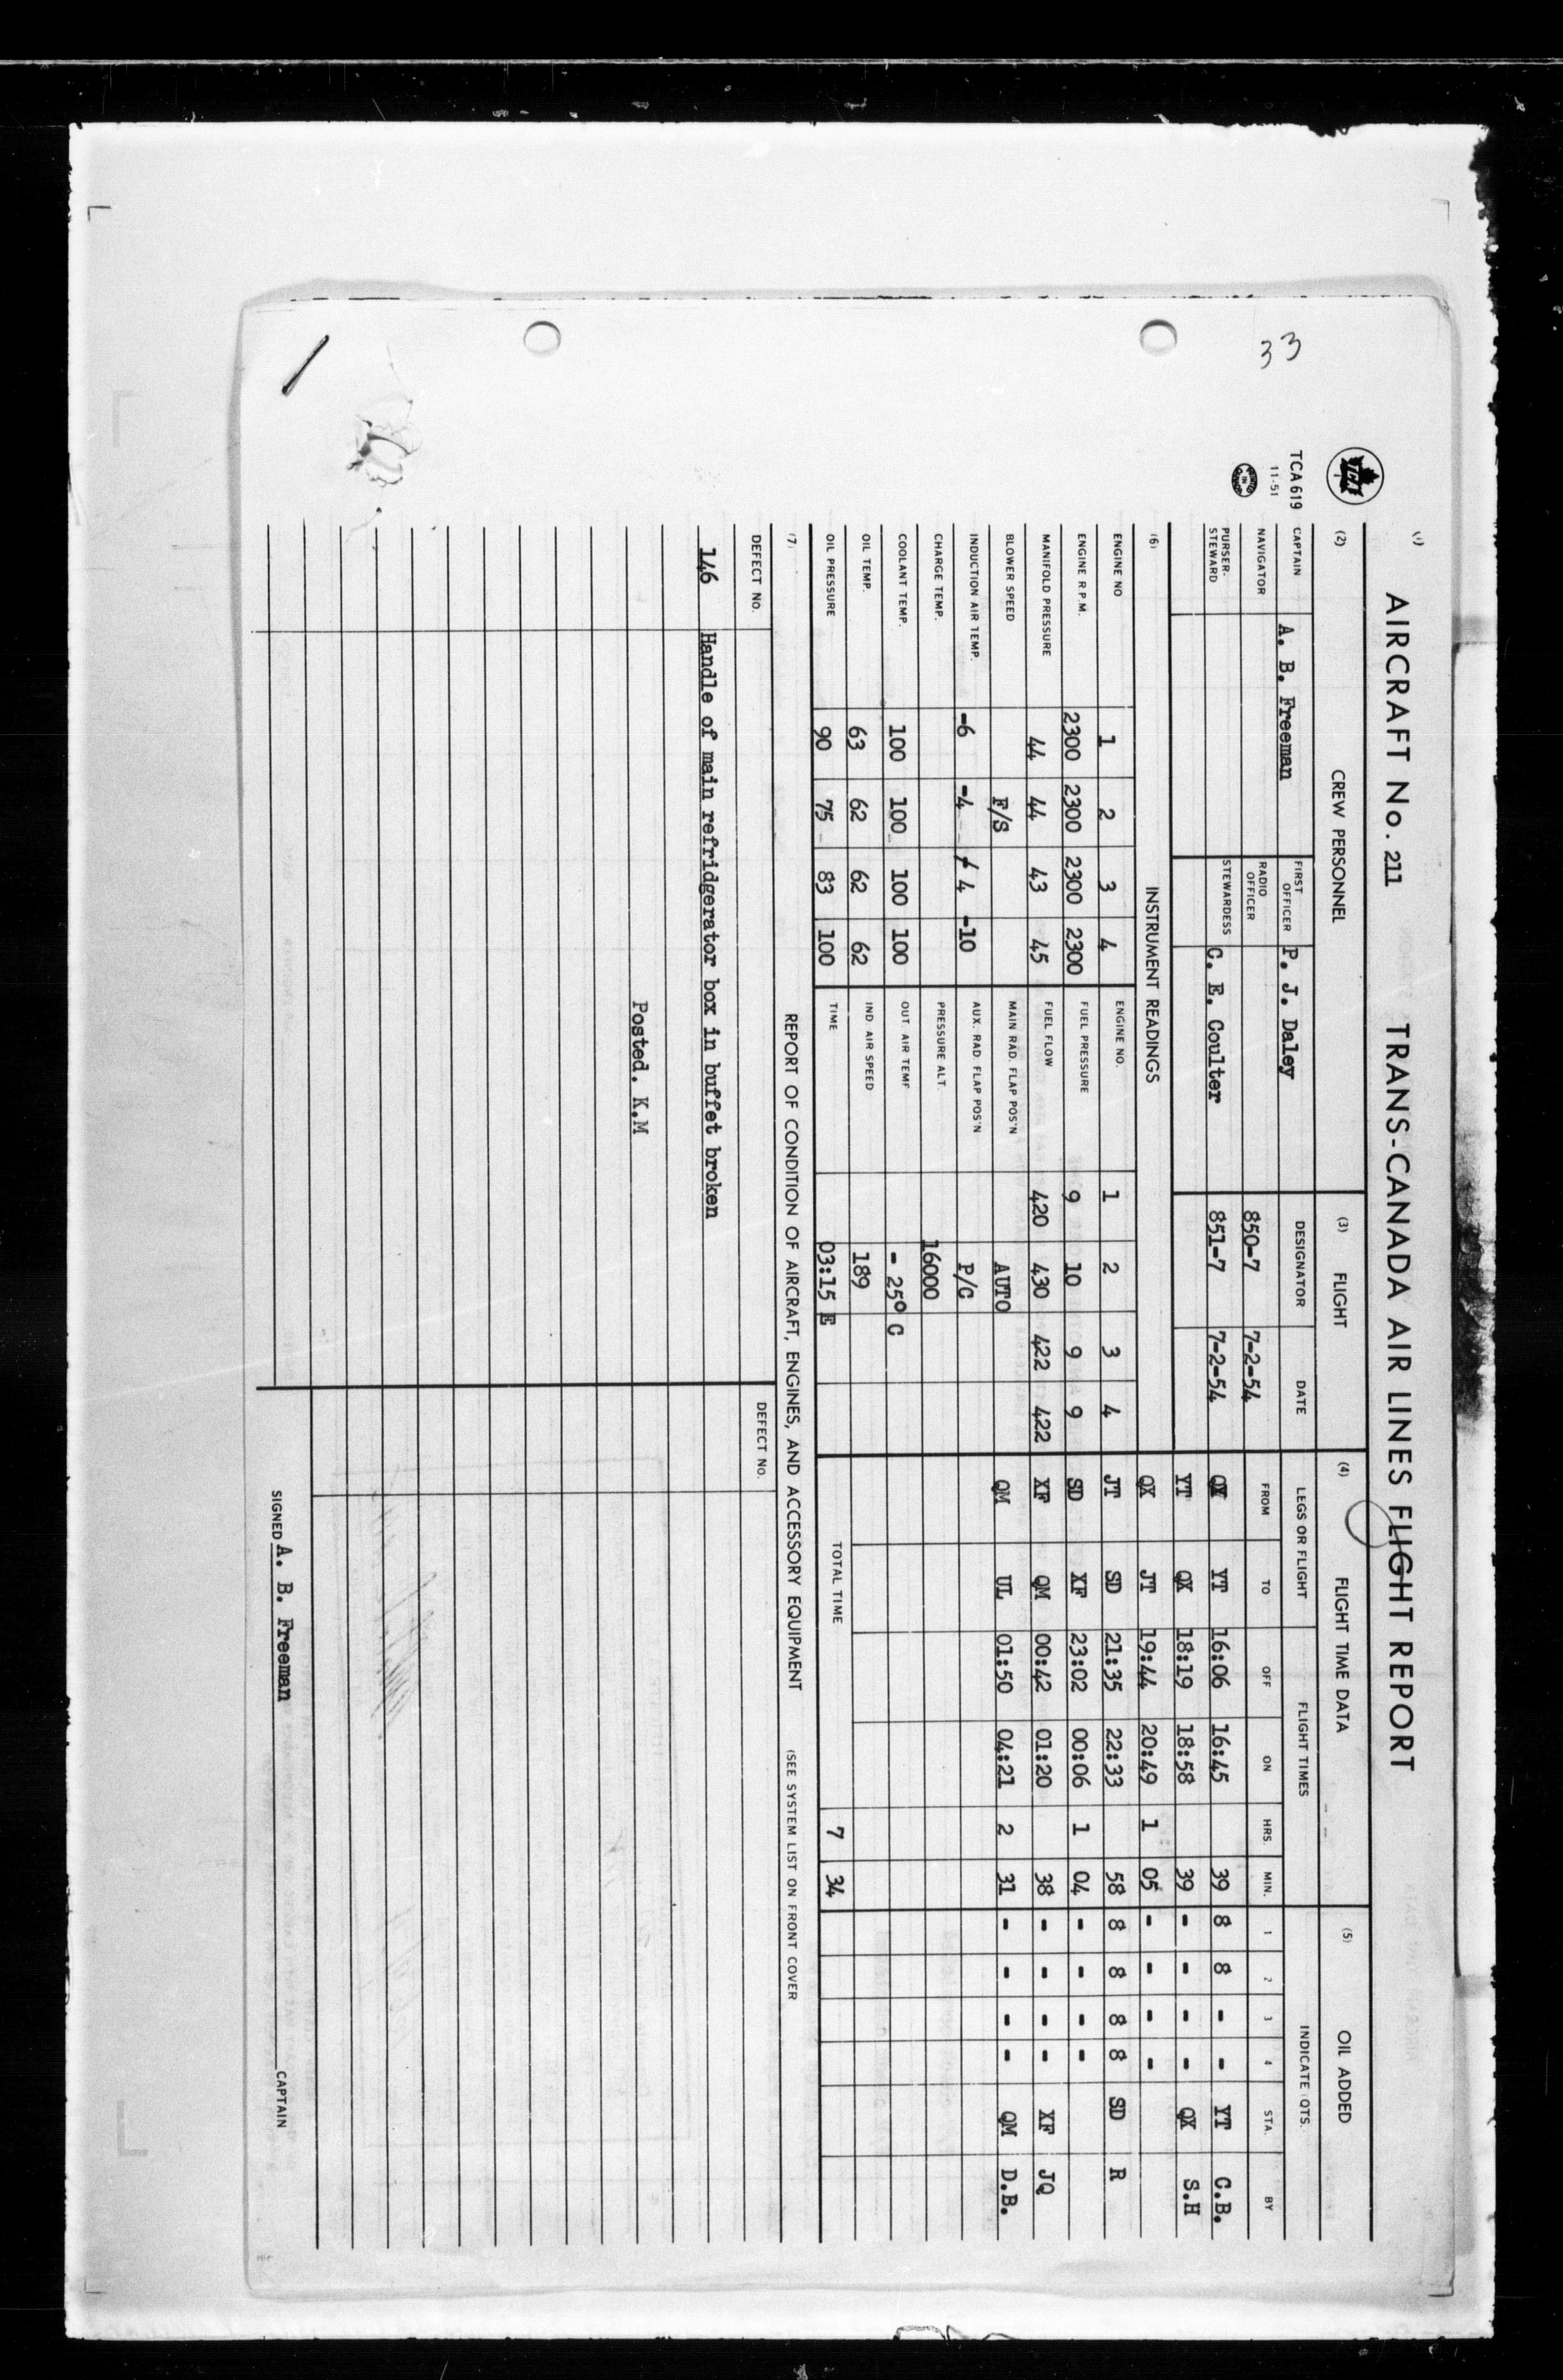 33
(1) AIRCRAFT No. 211 TRANS-CANADA AIR LINES FLIGHT REPORT
TCA
TCA 619
11-51
(2) CREW PERSONNEL (3) FLIGHT (4) FLIGHT TIME DATA (5) OIL ADDED
CAPTAIN A. B. Freeman FIRST OFFICER P. J. Daley DESIGNATOR DATE LEGS OR FLIGHT FLIGHT TIMES INDICATE QTS.
NAVIGATOR RADIO OFFICER 850-7 7-2-54 FROM TO OFF ON HRS. MIN. 1 2 3 4 STA. BY
PURSER-STEWARD STEWARDESS C. E. Coulter 851-7 7-2-54 QX YT 16:06 16:45 39 8 8 - - YT C.B.
YT QX 18:19 18:58 39 - - - - QX S.H
(6) INSTRUMENT READINGS QX JT 19:44 20:49 1 05 - - - -
ENGINE NO 1 2 3 4 ENGINE NO. 1 2 3 4 JT SD 21:35 22:33 58 8 8 8 8 SD R
ENGINE R.P.M. 2300 2300 2300 2300 FUEL PRESSURE 9 10 9 9 SD XF 23:02 00:06 1 04 - - - -
MANIFOLD PRESSURE 44 44 43 45 FUEL FLOW 420 430 422 422 XF QM 00:42 01:20 38 - - - - XF JQ
BLOWER SPEED F/S MAIN RAD. FLAP POS'N AUTO QM UL 01:50 04:21 2 31 - - - - QM D.B.
INDUCTION AIR TEMP. -6 -4 / 4 -10 AUX. RAD. FLAP POS'N P/C
CHARGE TEMP. PRESSURE ALT. 16000
COOLANT TEMP. 100 100 100 100 OUT. AIR TEMP - 25° C
OIL TEMP. 63 62 62 62 IND. AIR SPEED 189
OIL PRESSURE 90 75 83 100 TIME 03:15 E TOTAL TIME 7 34
(7) REPORT OF CONDITION OF AIRCRAFT, ENGINES, AND ACCESSORY EQUIPMENT (SEE SYSTEM LIST ON FRONT COVER
DEFECT No. DEFECT No.
146 Handle of main refridgerator box in buffet broken
Posted. K.M
SIGNED A. B. Freeman CAPTAIN